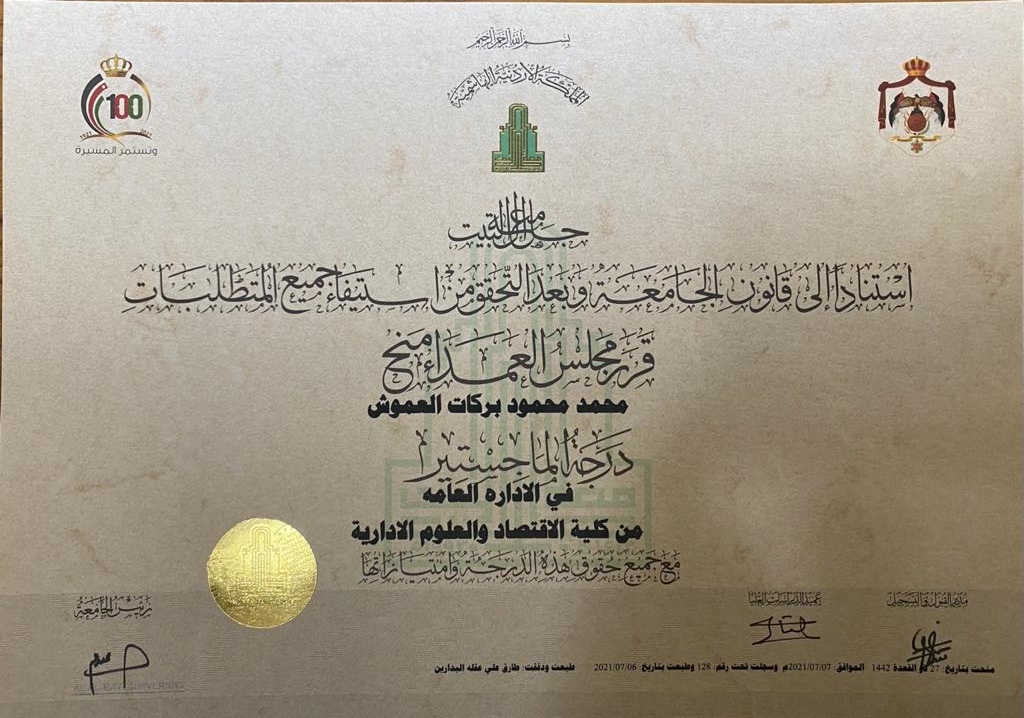 بسم الله الرحمن الرحيم
المملكة الأردنية الهاشمية
100
1921 2021
وتستمر المسيرة
جامعة آل البيت
استناداً إلى قانون الجامعة وبعد التحقق من استيفاء جميع المتطلبات
قرر مجلس العمداء منح
محمد محمود بركات العموش
درجة الماجستير
في الاداره العامه
من كلية الاقتصاد والعلوم الادارية
مع جميع حقوق هذه الدرجة وامتيازاتها
مدير القبول والتسجيل
عميد الدراسات العليا
رئيس الجامعة
AL AL-BAYT UNIVERSITY
منحت بتاريخ: 27 ذو القعدة 1442 الموافق: 2021/07/07م وسجلت تحت رقم: 128 وطبعت بتاريخ: 2021/07/06 طبعت ودققت: طارق علي عقله البدارين